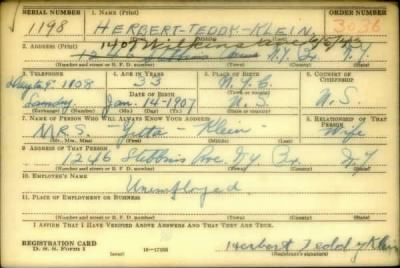 SERIAL NUMBER 1. NAME (Print) ORDER NUMBER
1198 HERBERT-TEDDY-KLEIN 3036
2. ADDRESS (Print) 1407 Wilkinson
1246 Stebbins Ave. N.Y. Bx. N.Y.
(Number and street or R. F. D. number) (Town) (County) (State)
3. TELEPHONE 4. AGE IN YEARS 5. PLACE OF BIRTH 6. COUNTRY OF CITIZENSHIP
Dayton 9-1808 33 N.Y.C. 
DATE OF BIRTH
Jan. 14-1907 U.S. U.S.
(Exchange) (Number) (Mo.) (Day) (Yr.) (State or country)
7. NAME OF PERSON WHO WILL ALWAYS KNOW YOUR ADDRESS 8. RELATIONSHIP OF THAT PERSON
MRS. -Yetta- Klein Wife
(Mr., Mrs., Miss) (First) (Middle) (Last)
9. ADDRESS OF THAT PERSON
1246 Stebbins Ave. N.Y. Bx. N.Y
(Number and street or R. F. D. number) (Town) (County) (State)
10. EMPLOYER'S NAME
Unemployed
11. PLACE OF EMPLOYMENT OR BUSINESS
(Number and street or R. F. D. number) (Town) (County) (State)
I AFFIRM THAT I HAVE VERIFIED ABOVE ANSWERS AND THAT THEY ARE TRUE.
REGISTRATION CARD
D. S. S. Form 1 16-17105 Herbert Teddy Klein
(Registrant's signature)